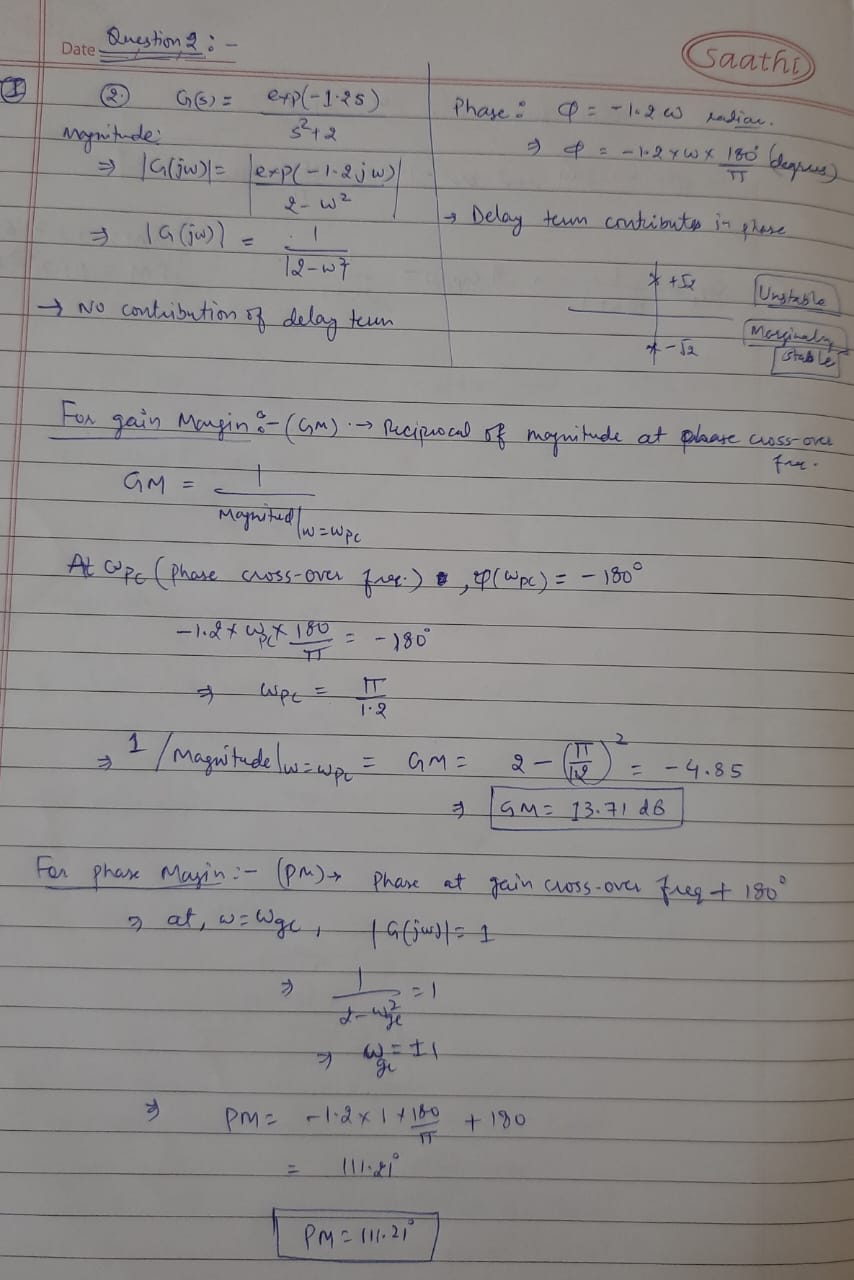 Date Question 2 :-
Saathi
I
② G(s) = exp(-1.2s) / s²+2
Magnitude:
⇒ |G(jω)| = |exp(-1.2jω)| / 2-ω²
⇒ |G(jω)| = 1 / |2-ω²|
→ No contribution of delay term
Phase : φ = -1.2ω radian.
⇒ φ = -1.2×ω×180°/π (degrees)
→ Delay term contributes in phase
+√2
-√2
Unstable
Marginally
Stable
For gain Margin :- (GM) → Reciprocal of magnitude at phase cross-over
freq.
GM = 1 / |ω=ωpc
At ωpc (Phase cross-over freq.), φ(ωpc) = -180°
-1.2×ωpc×180/π = -180°
⇒ ωpc = π/1.2
⇒ 1/Magnitude|ω=ωpc = GM = 2-(π/1.2)² = -4.85
⇒ GM = 13.71 dB
For phase Margin :- (PM) → Phase at gain cross-over freq + 180°
⇒ at, ω=ωgc, |G(jω)| = 1
⇒ 1 / 2-ωgc² = 1
⇒ ωgc = ±1
⇒ PM = -1.2×1×180/π + 180
= 111.21°
PM = 111.21°